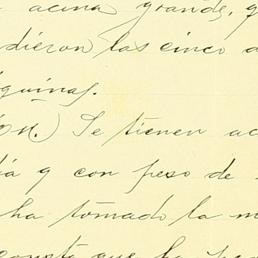 acina grande, q
dieron las cinco a
quinas.
Se tienen ac
iá y con peso de
ha tomado la m
consta que ha